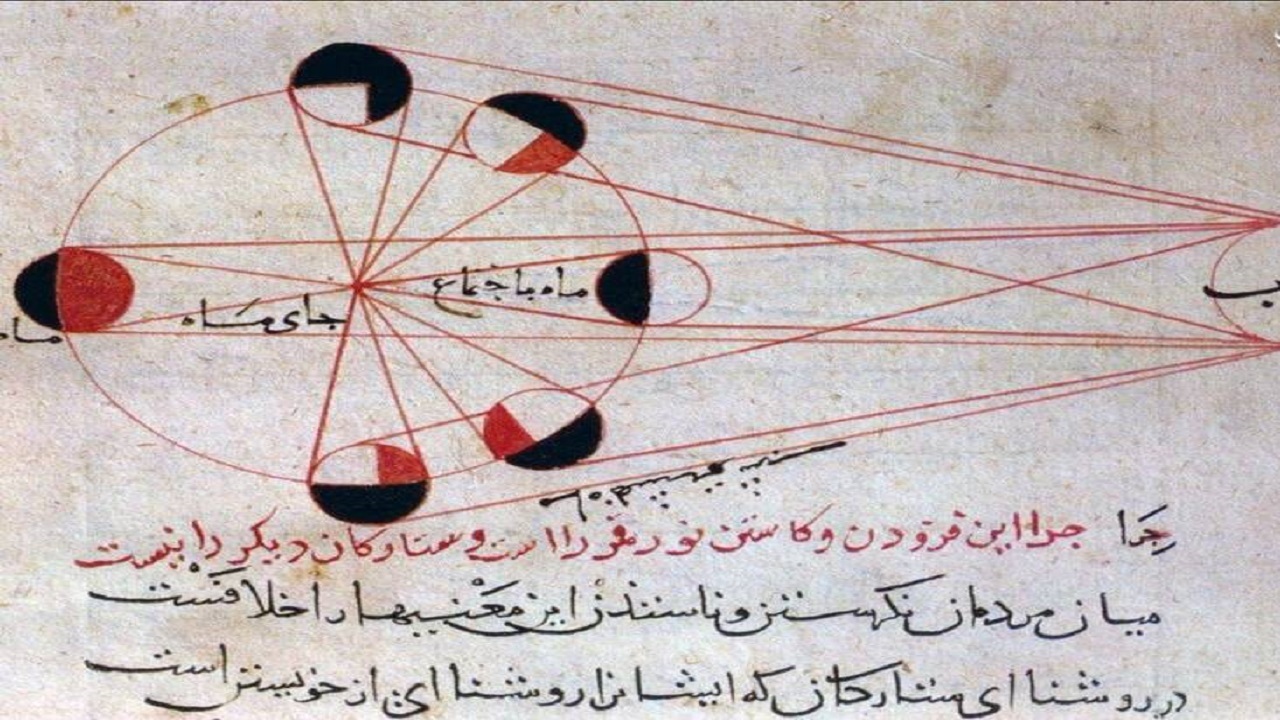 ماه باجتماع
جای ماه
ب
ماه
چرا این فزودن و کاستن نور قمر را است و ستارکان دیکر را نیست
میان مردمان نکرستن و ناسندن این معنیها را خلافست
در روشنا ای ستارکان که ایشانرا روشنا ای از خویشتن است